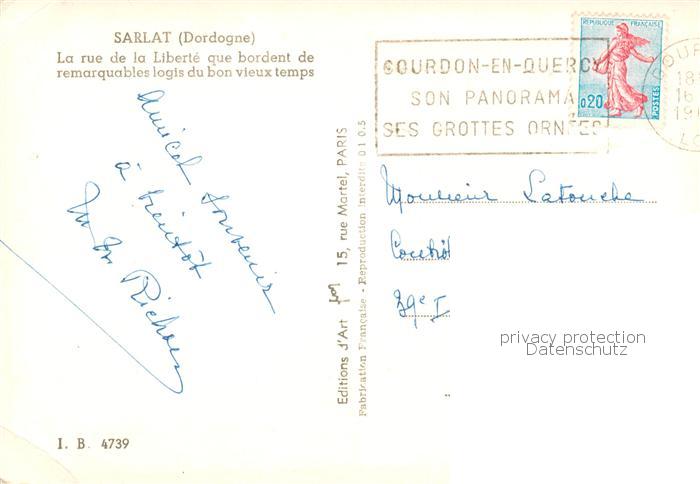 SARLAT (Dordogne)
La rue de la Liberté que bordent de
remarquables logis du bon vieux temps
Amical souvenir
à bientôt
I. B. 4739
Editions d'Art 15, rue Martel, PARIS
Fabrication Française - Reproduction Interdite 0 1 0.5
GOURDON-EN-QUERCY
SON PANORAMA
SES GROTTES ORNÉES
REPUBLIQUE FRANÇAISE
0,20
POSTES
GOUR
18
16
19
LO
Monsieur Latouche
Contrôl
privacy protection
Datenschutz